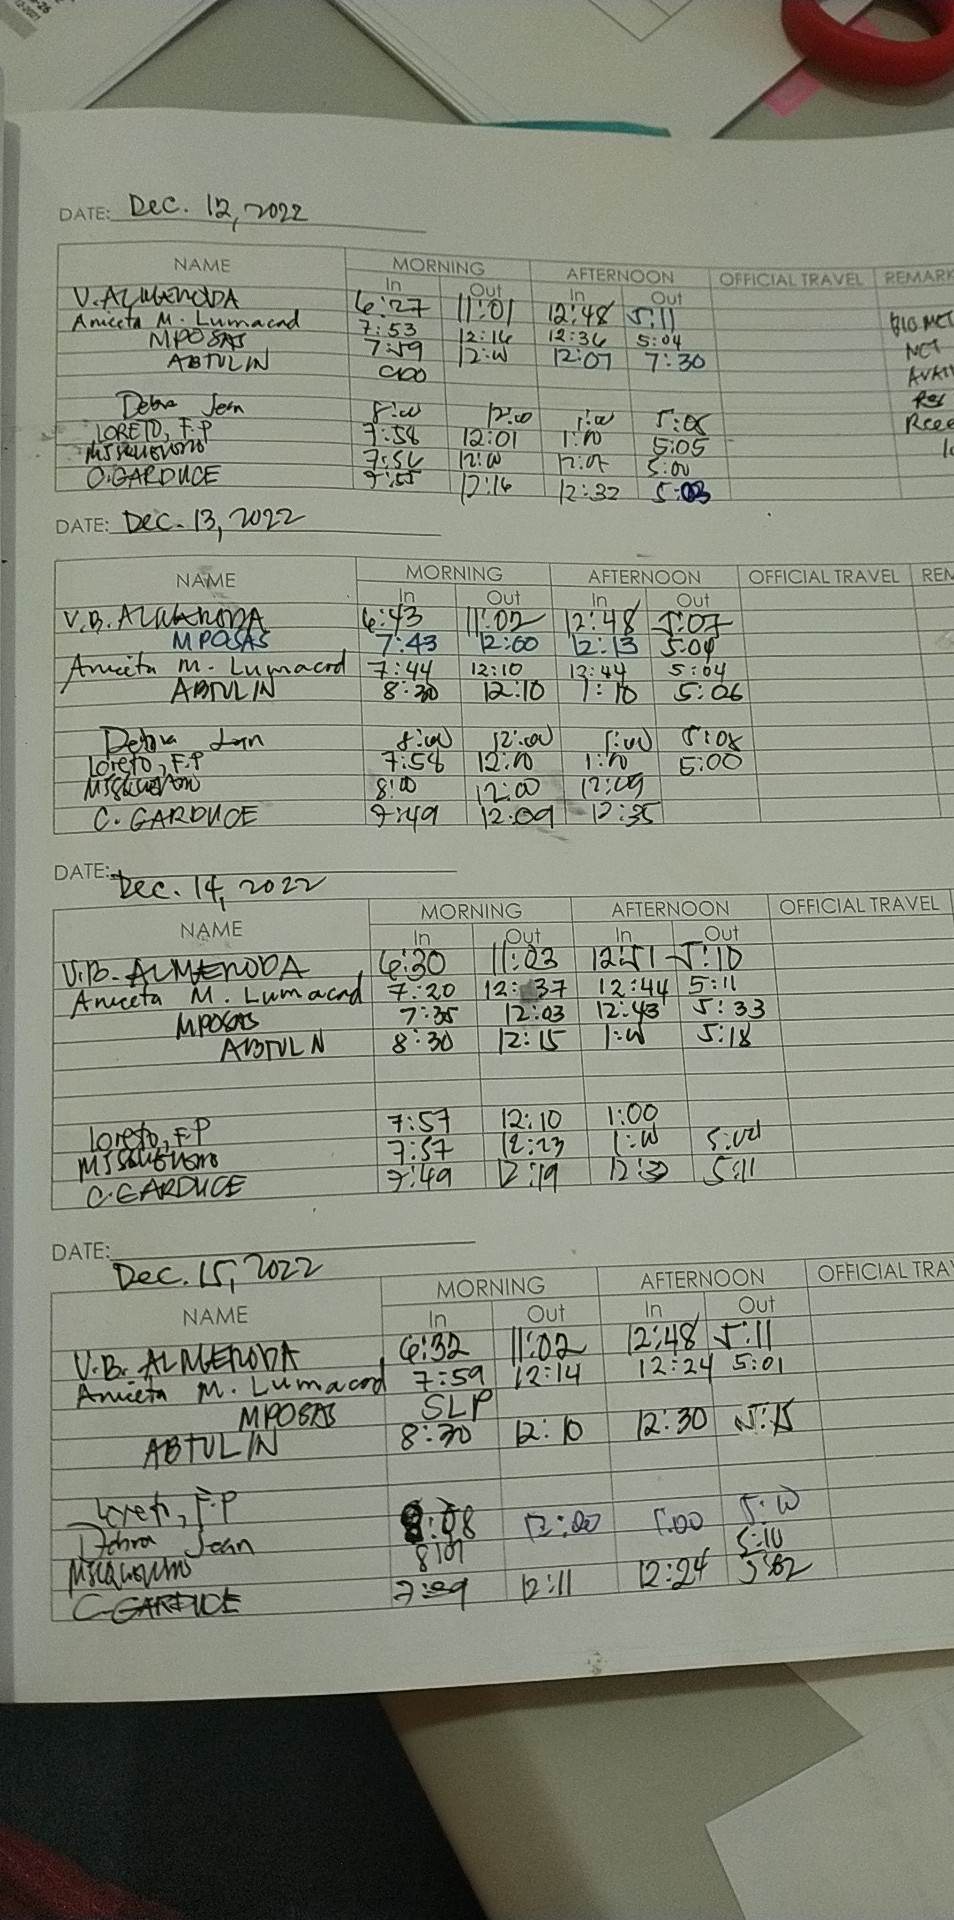 DATE: Dec. 12, 2022
NAME MORNING AFTERNOON OFFICIAL TRAVEL REMARK
In Out In Out
V. ALMENODA 6:27 11:01 12:48 5:11
Aniceta M. Lumacad 7:53 12:16 12:36 5:04
MPOSAS 7:59 12:00 12:07 7:30
ABTULIN CDO
Debra Jean 8:00 12:00 1:00 5:05
LORETO, F.P 7:58 12:01 1:00 5:05
12:00 5:00
C. GARDUCE 7:55 12:16 12:32 5:03
DATE: Dec. 13, 2022
NAME MORNING AFTERNOON OFFICIAL TRAVEL REM
In Out In Out
V.B. ALMENODA 6:43 11:02 12:48 5:07
MPOSAS 7:43 12:00 12:13 5:04
Aniceta M. Lumacad 7:44 12:10 12:44 5:04
ABTULIN 8:30 12:10 1:10 5:06
Debra Jean 8:00 12:00 1:00 5:05
Loreto, F.P 7:58 12:10 1:00 5:00
8:00 12:00 12:09
C. GARDUCE 7:49 12:09 12:35
DATE: Dec. 14, 2022
NAME MORNING AFTERNOON OFFICIAL TRAVEL
In Out In Out
V.B. ALMENODA 6:30 11:03 12:51 5:10
Aniceta M. Lumacad 7:20 12:37 12:44 5:11
MPOSAS 7:35 12:03 12:43 5:33
ABTULIN 8:30 12:15 1:00 5:18
Loreto, F.P 7:57 12:10 1:00
7:57 12:23 1:00
C. GARDUCE 7:49 12:19 12:32 5:11
DATE:
Dec. 15, 2022
NAME MORNING AFTERNOON OFFICIAL TRA
In Out In Out
V.B. ALMENODA 6:32 11:02 12:48 5:11
Aniceta M. Lumacad 7:59 12:14 12:24 5:01
MPOSAS SLP
ABTULIN 8:30 12:10 12:30 5:15
Loreto, F.P 5:00
Debra Jean 8:08 12:00 1:00 5:10
C. GARDUCE 12:11 12:24